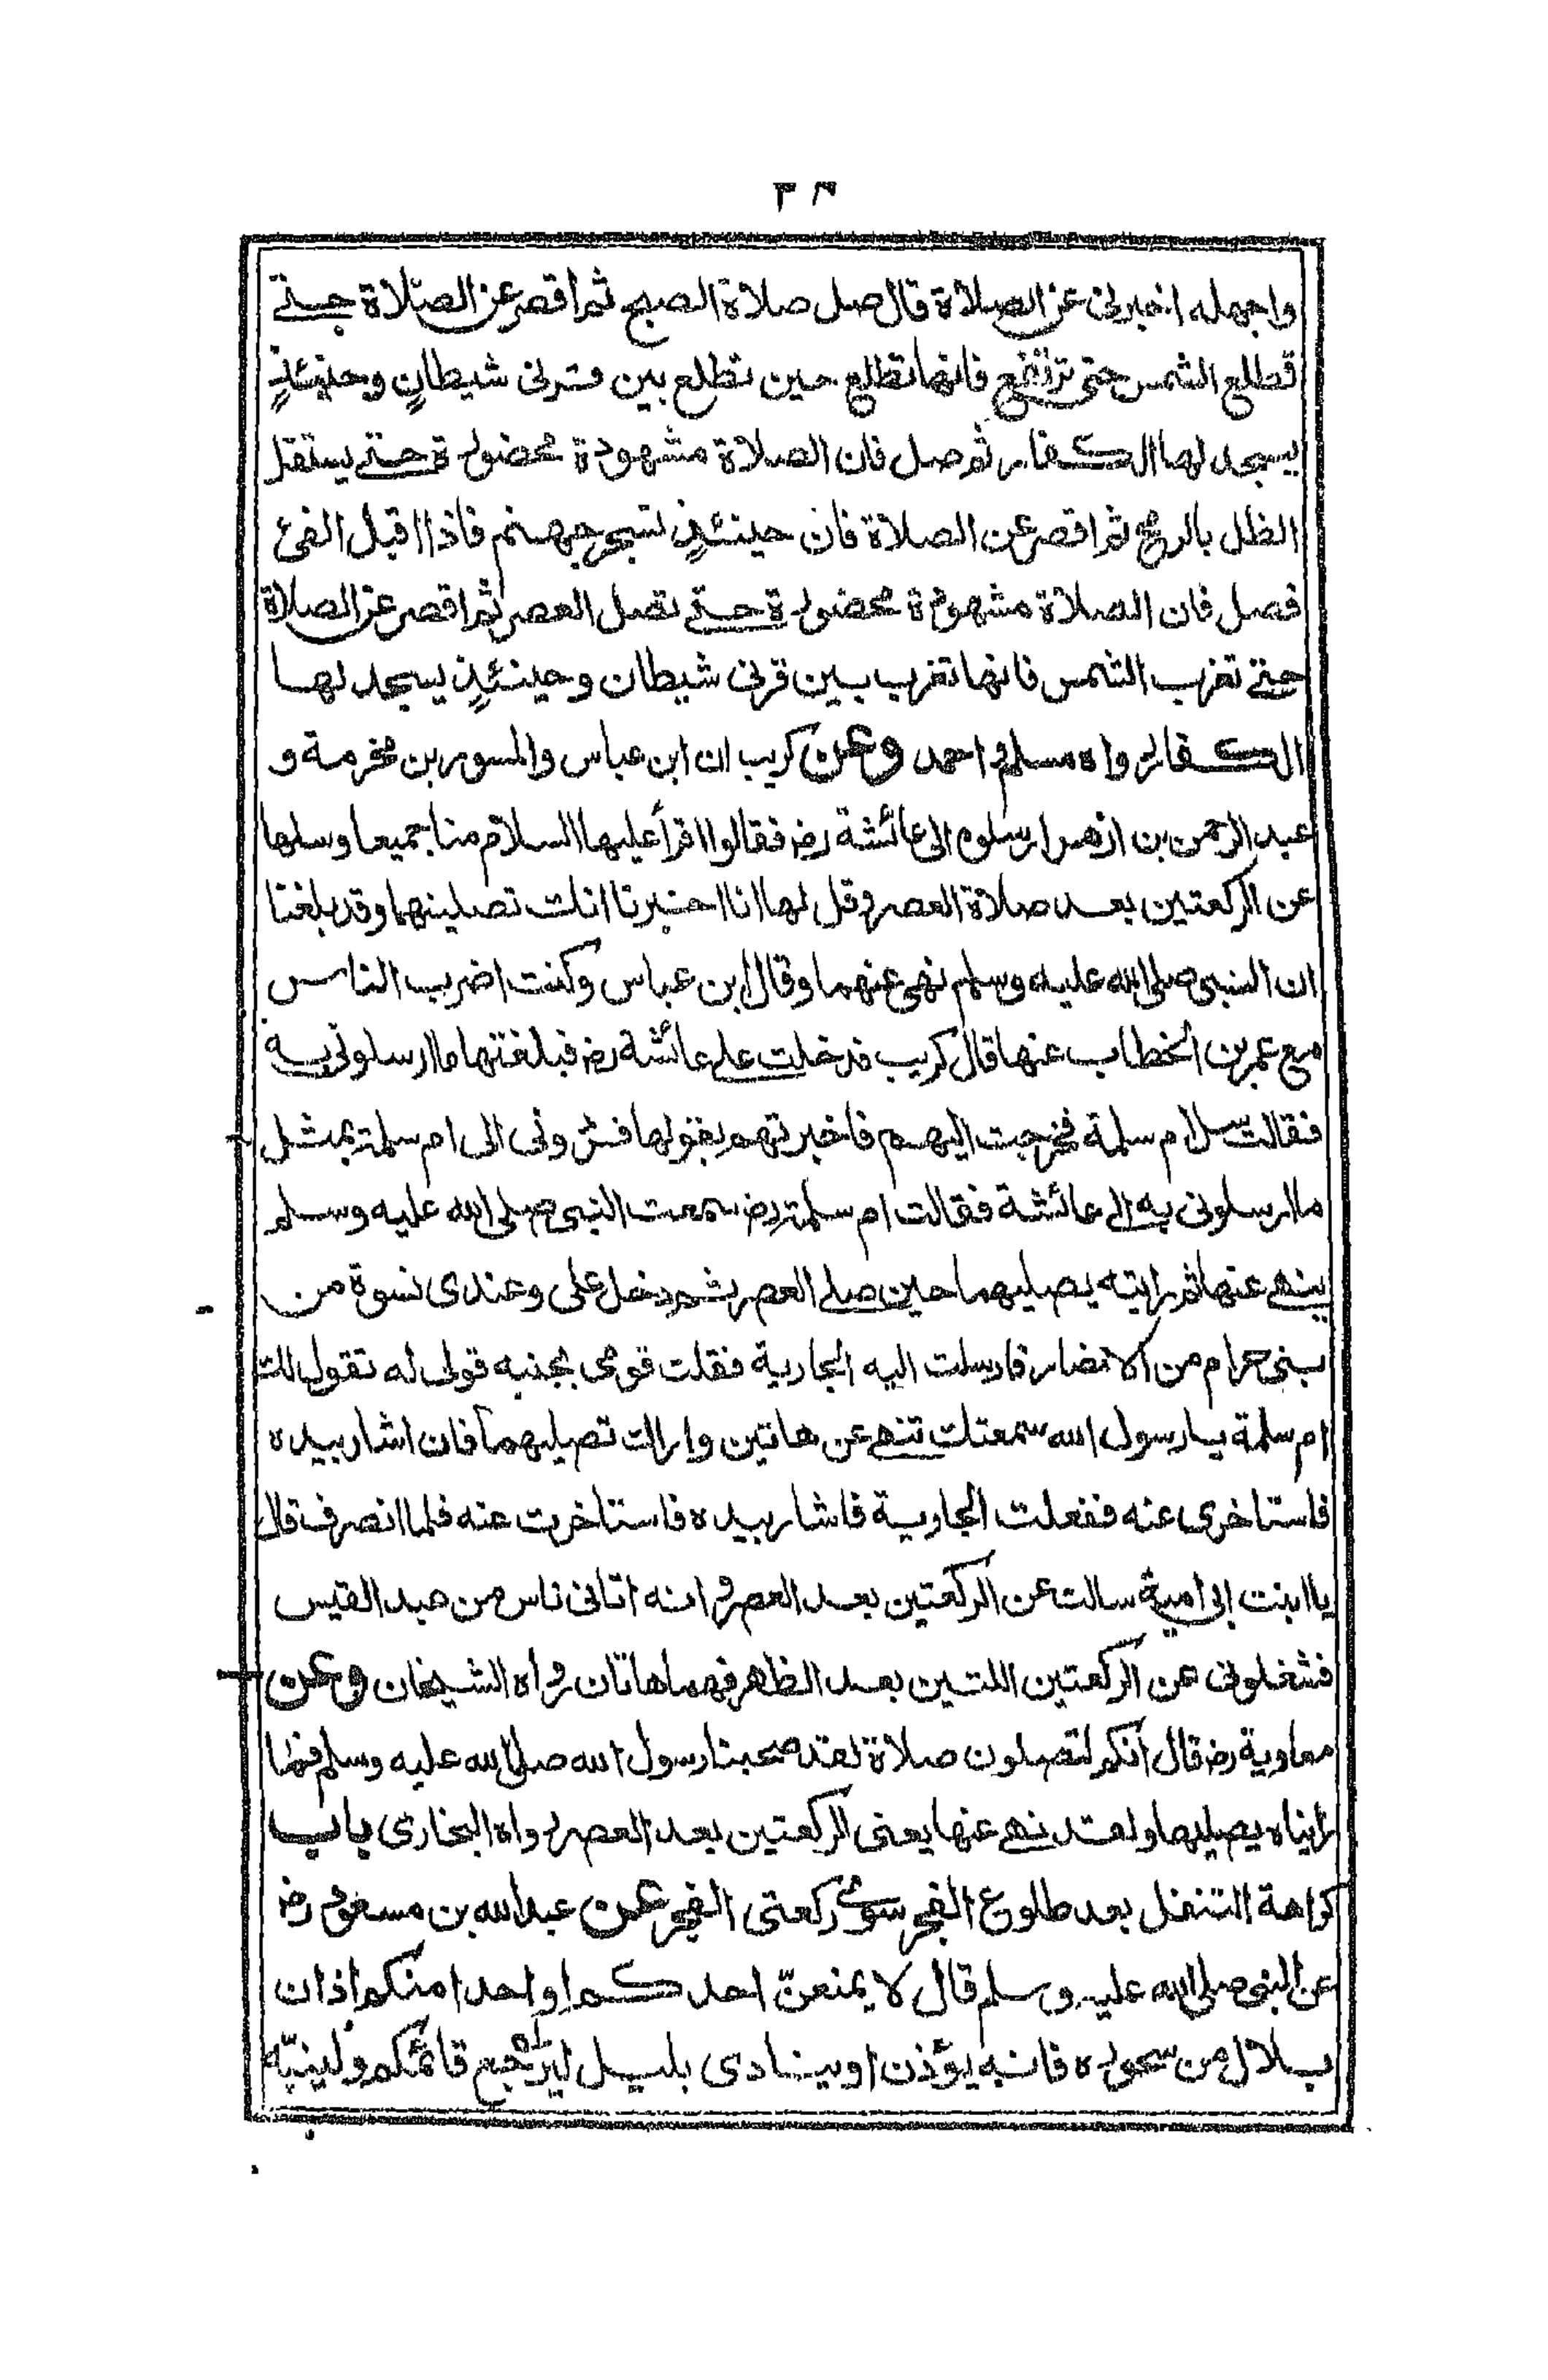 ٣٣
واجهله اخبرنى عن الصلاة قال صل صلاة الصبح ثم اقصر عن الصلاة حتى
تطلع الشمس حتى ترتفع فانها تطلع حين تطلع بين قرنى شيطانٍ وحينئذٍ
يسجد لها الكفار ثم صل فان الصلاة مشهودة محضورة حتى يستقل
الظل بالرمح ثم اقصر عن الصلاة فان حينئذٍ تسجر جهنم فاذا اقبل الفئ
فصل فان الصلاة مشهودة محضورة حتى تصل العصر ثم اقصر عن الصلاة
حتى تغرب الشمس فانها تغرب بين قرنى شيطان وحينئذٍ يسجد لها
الكفار رواه مسلم واحمد وعن كريب ان ابن عباس والمسور بن مخرمة و
عبد الرحمن بن ازهر ارسلوه الى عائشة رض فقالوا اقرأ عليها السلام منا جميعا وسلها
عن الركعتين بعد صلاة العصر وقل لها انا اخبرنا انك تصلينهما وقد بلغنا
ان النبى صلى الله عليه وسلم نهى عنهما وقال ابن عباس وكنت اضرب الناس
مع عمر بن الخطاب عنها قال كريب فدخلت على عائشة رض فبلغتها ما ارسلونى به
فقالت سل ام سلمة فخرجت اليهم فاخبرتهم بقولها فردونى الى ام سلمة بمثل
ما ارسلونى به الى عائشة فقالت ام سلمة رض سمعت النبى صلى الله عليه وسلم
ينهى عنها ثم رايته يصليهما حين صلى العصر ثم دخل على وعندى نسوة من
بنى حرام من الانصار فارسلت اليه الجارية فقلت قومى بجنبه قولى له تقول لك
ام سلمة يا رسول الله سمعتك تنهى عن هاتين واراك تصليهما فان اشار بيده
فاستاخرى عنه ففعلت الجارية فاشار بيده فاستاخرت عنه فلما انصرف قال
يا ابنت ابى امية سالت عن الركعتين بعد العصر وانه اتانى ناس من عبد القيس
فشغلونى عن الركعتين اللتين بعد الظهر فهما هاتان رواه الشيخان وعن
معاوية رض قال أنكم لتصلون صلاة لقد صحبنا رسول الله صلى الله عليه وسلم فما
رايناه يصليها ولقد نهى عنها يعنى الركعتين بعد العصر رواه البخارى باب
كراهة التنفل بعد طلوع الفجر سوى ركعتى الفجر عن عبد الله بن مسعود رض
عن النبى صلى الله عليه وسلم قال لا يمنعنّ احدكم او احدا منكم اذان
بلال من سحوره فانه يؤذن او ينادى بليل ليرجع قائمكم ولينبّه